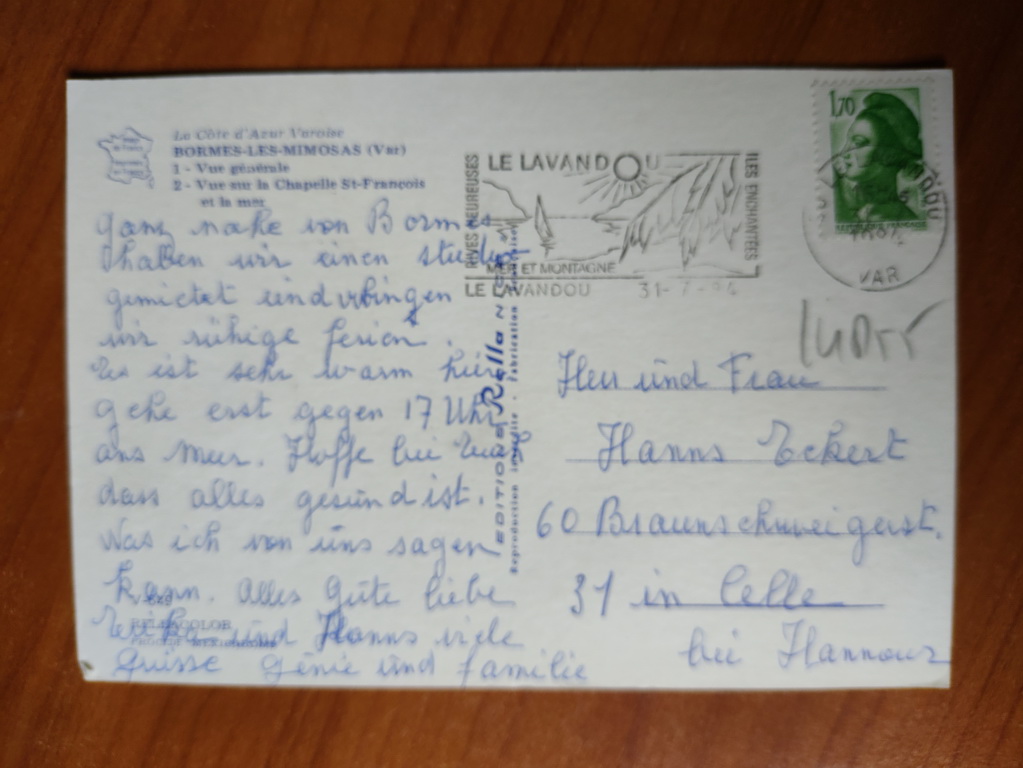 La Côte d'Azur Varoise
BORMES-LES-MIMOSAS (Var)
1 - Vue générale
2 - Vue sur la Chapelle St-François
et la mer
RIVES HEUREUSES
LE LAVANDOU
ILES ENCHANTÉES
MER ET MONTAGNE
LE LAVANDOU 31-7-84
1,70
VAR
ganz nahe von Bormes
haben wir einen studio
gemietet und vbingen
wir rühige ferien.
Es ist sehr warm hier
gehe erst gegen 17 Uhr
ans Meer. Hoffe bei Euch
dass alles gesünd ist.
Was ich von üns sagen
kann. Alles Güte liebe
und Hanns viele
Grüsse Génie und familie
EDITIONS Rella NICE
Reproduction interdite - Fabrication
RELLACOLOR
Herr und Frau
Hanns Eckert
60 Braunschweigerst.
31 in Celle
bei Hannover